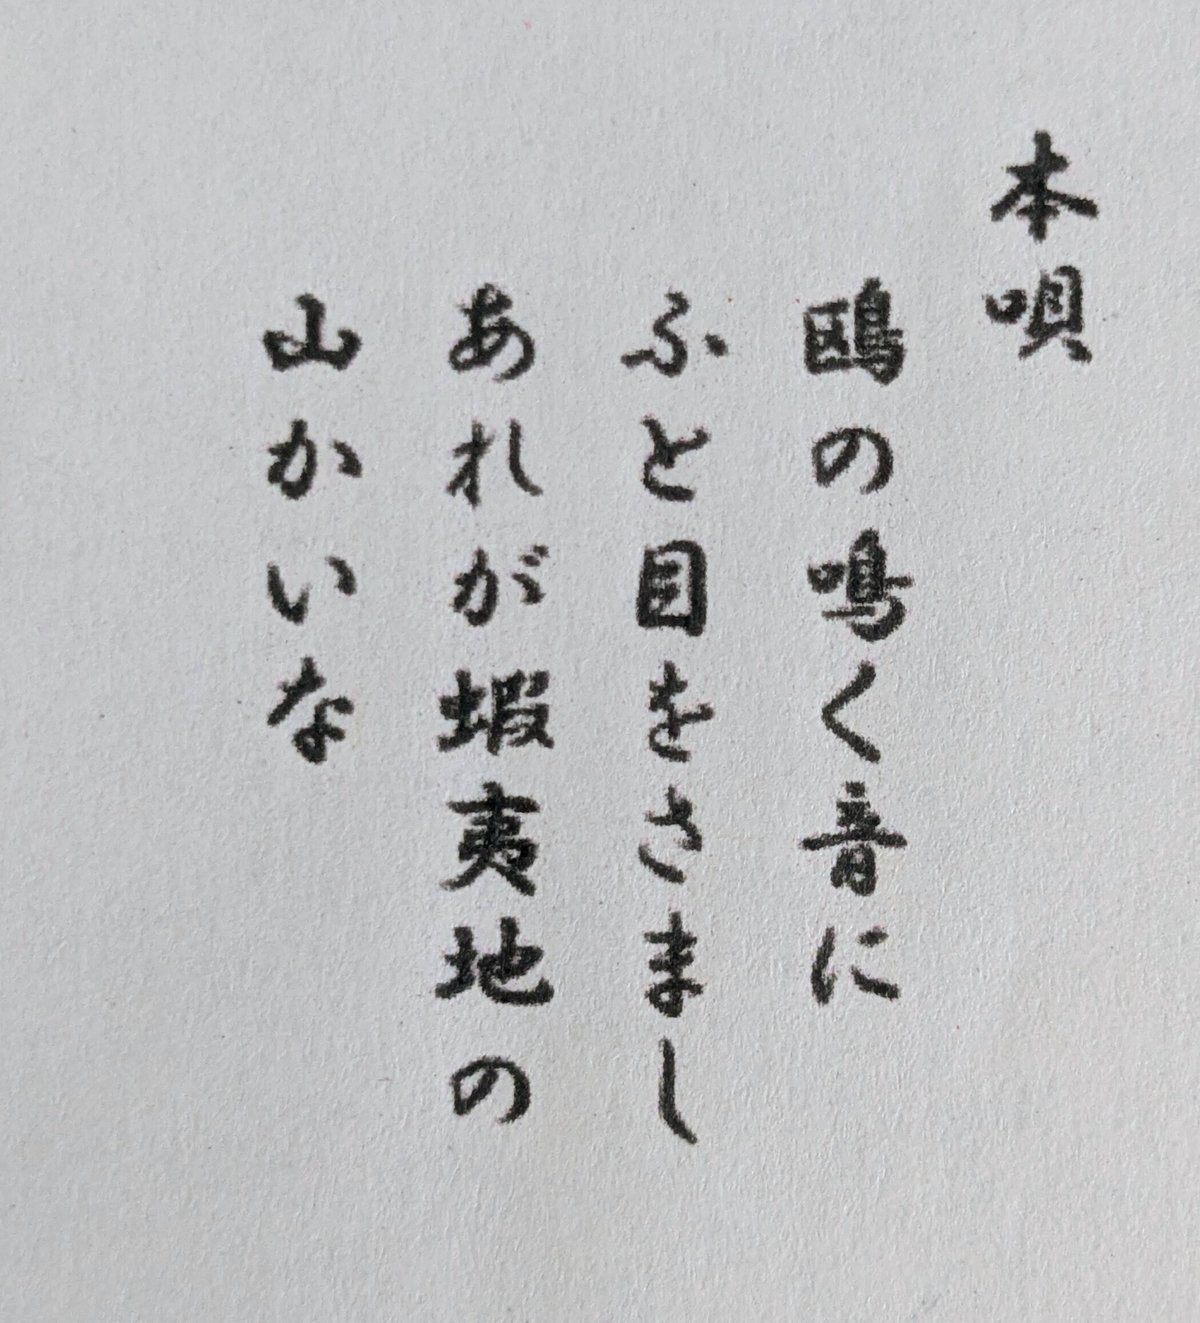 本唄
鴎の鳴く音に
ふと目をさまし
あれが蝦夷地の
山かいな